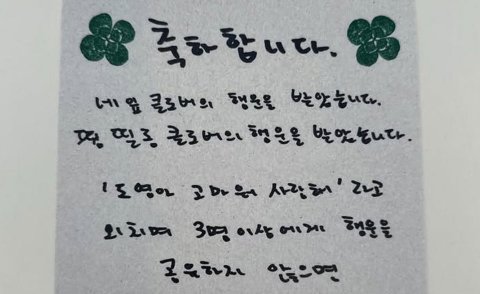 축하합니다.
네잎 클로버의 행운을 받았습니다.
띵 띨롱 클로버의 행운을 받았습니다.
'도영아 고마워 사랑해' 라고
외치며 3명이상에게 행운을
공유하지 않으면